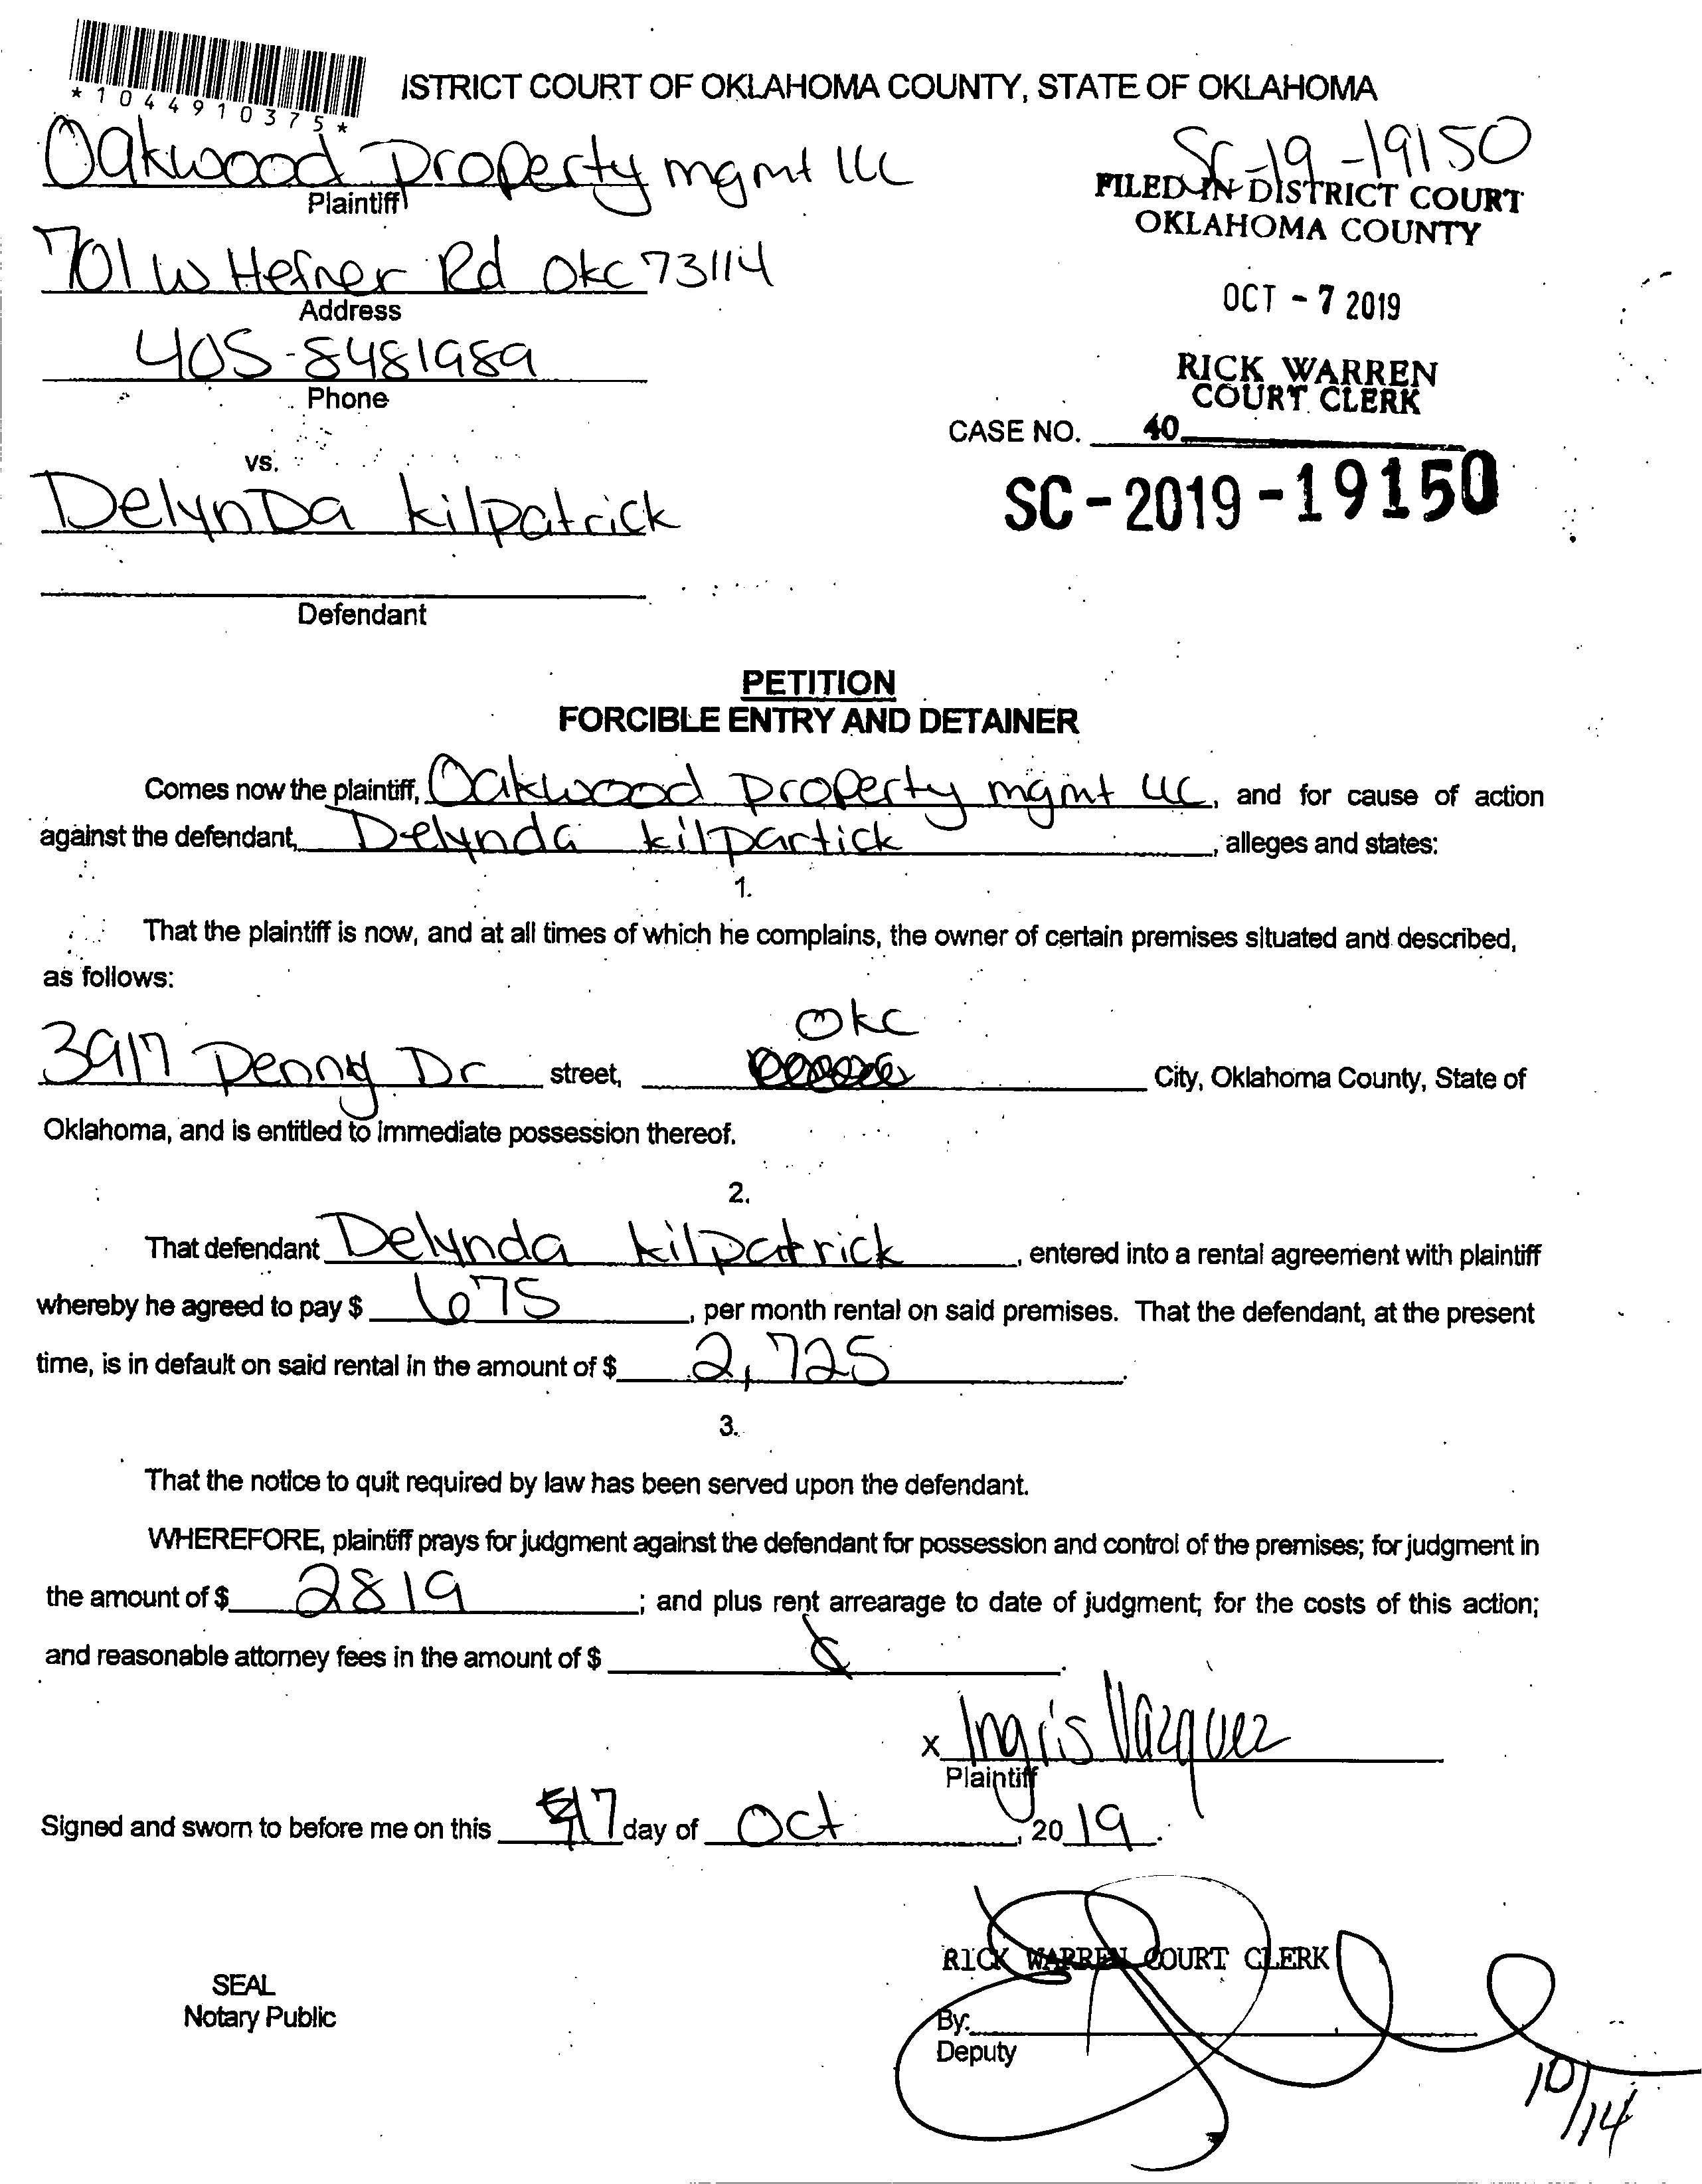 *1044910375*
ISTRICT COURT OF OKLAHOMA COUNTY, STATE OF OKLAHOMA
Oakwood Property mgmt llc
Plaintiff
SC-19-19150
FILED IN DISTRICT COURT
OKLAHOMA COUNTY
701 W Hefner Rd Okc 73114
Address
OCT - 7 2019
405-8481989
Phone
RICK WARREN
COURT CLERK
CASE NO. 40
vs.
SC-2019-19150
DelynDa kilpatrick
Defendant
PETITION
FORCIBLE ENTRY AND DETAINER
Comes now the plaintiff, Oakwood property mgmt LLC, and for cause of action
against the defendant, Delynda kilpartick, alleges and states:
1.
That the plaintiff is now, and at all times of which he complains, the owner of certain premises situated and described,
as follows:
OKC
3917 Penny Dr street, City, Oklahoma County, State of
Oklahoma, and is entitled to immediate possession thereof.
2.
That defendant Delynda kilpatrick, entered into a rental agreement with plaintiff
whereby he agreed to pay $ 675, per month rental on said premises. That the defendant, at the present
time, is in default on said rental in the amount of $ 2,725.
3.
That the notice to quit required by law has been served upon the defendant.
WHEREFORE, plaintiff prays for judgment against the defendant for possession and control of the premises; for judgment in
the amount of $ 2819; and plus rent arrearage to date of judgment; for the costs of this action;
and reasonable attorney fees in the amount of $
x Ingris Vazquez
Plaintiff
Signed and sworn to before me on this 7 day of Oct, 2019.
RICK WARREN COURT CLERK
SEAL
Notary Public
By:
Deputy
10/14